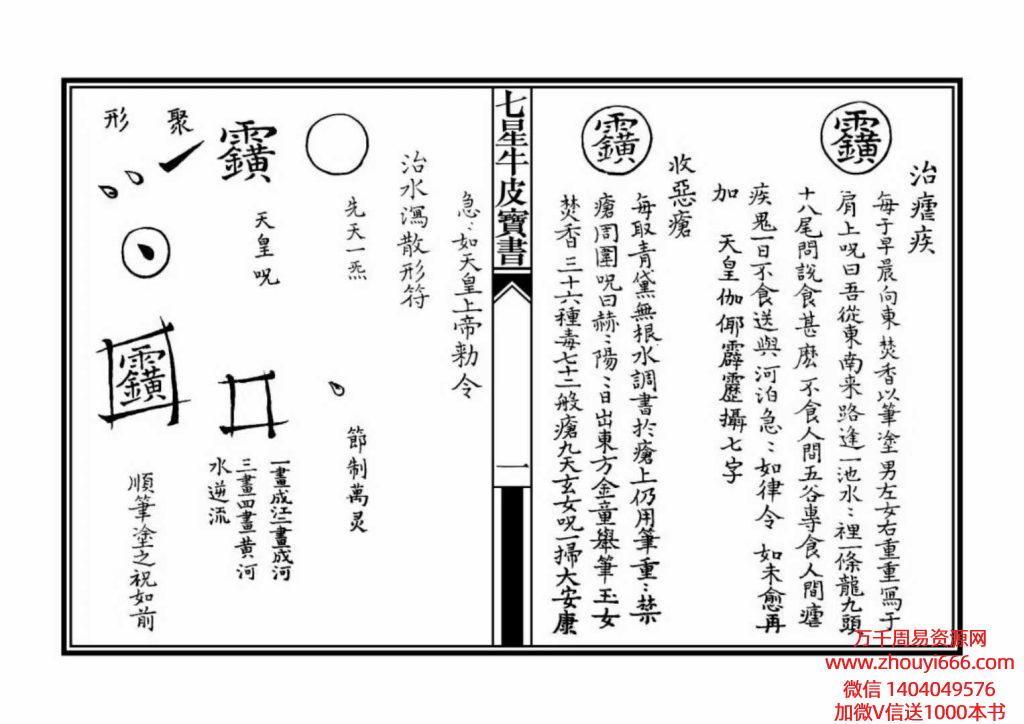 治瘧疾
每于早晨向東焚香以筆塗男左女右重重寫于
肩上呪曰吾從東南来路逢一池水〻裡一條龍九頭
十八尾問說食甚麽不食人間五谷專食人間瘧
疾鬼一日不食送與河泊急〻如律令 如未愈再
加 天皇伽倻霹靂攝七字
收惡瘡
每取青黛無根水調書於瘡上仍用筆重〻禁
瘡周圍呪曰赫〻陽〻日出東方金童舉筆玉女
焚香三十六種毒七十二般瘡九天玄女呪一掃大安康
七星牛皮寶書
一
急〻如天皇上帝勅令
治水瀉散形符
先天一炁
節制萬灵
天皇呪
一畫成江二畫成河
三畫四畫黄河
水逆流
聚形
順筆塗之祝如前
万千周易资源网
www.zhouyi666.com
微信 1404049576
加微V信送1000本书